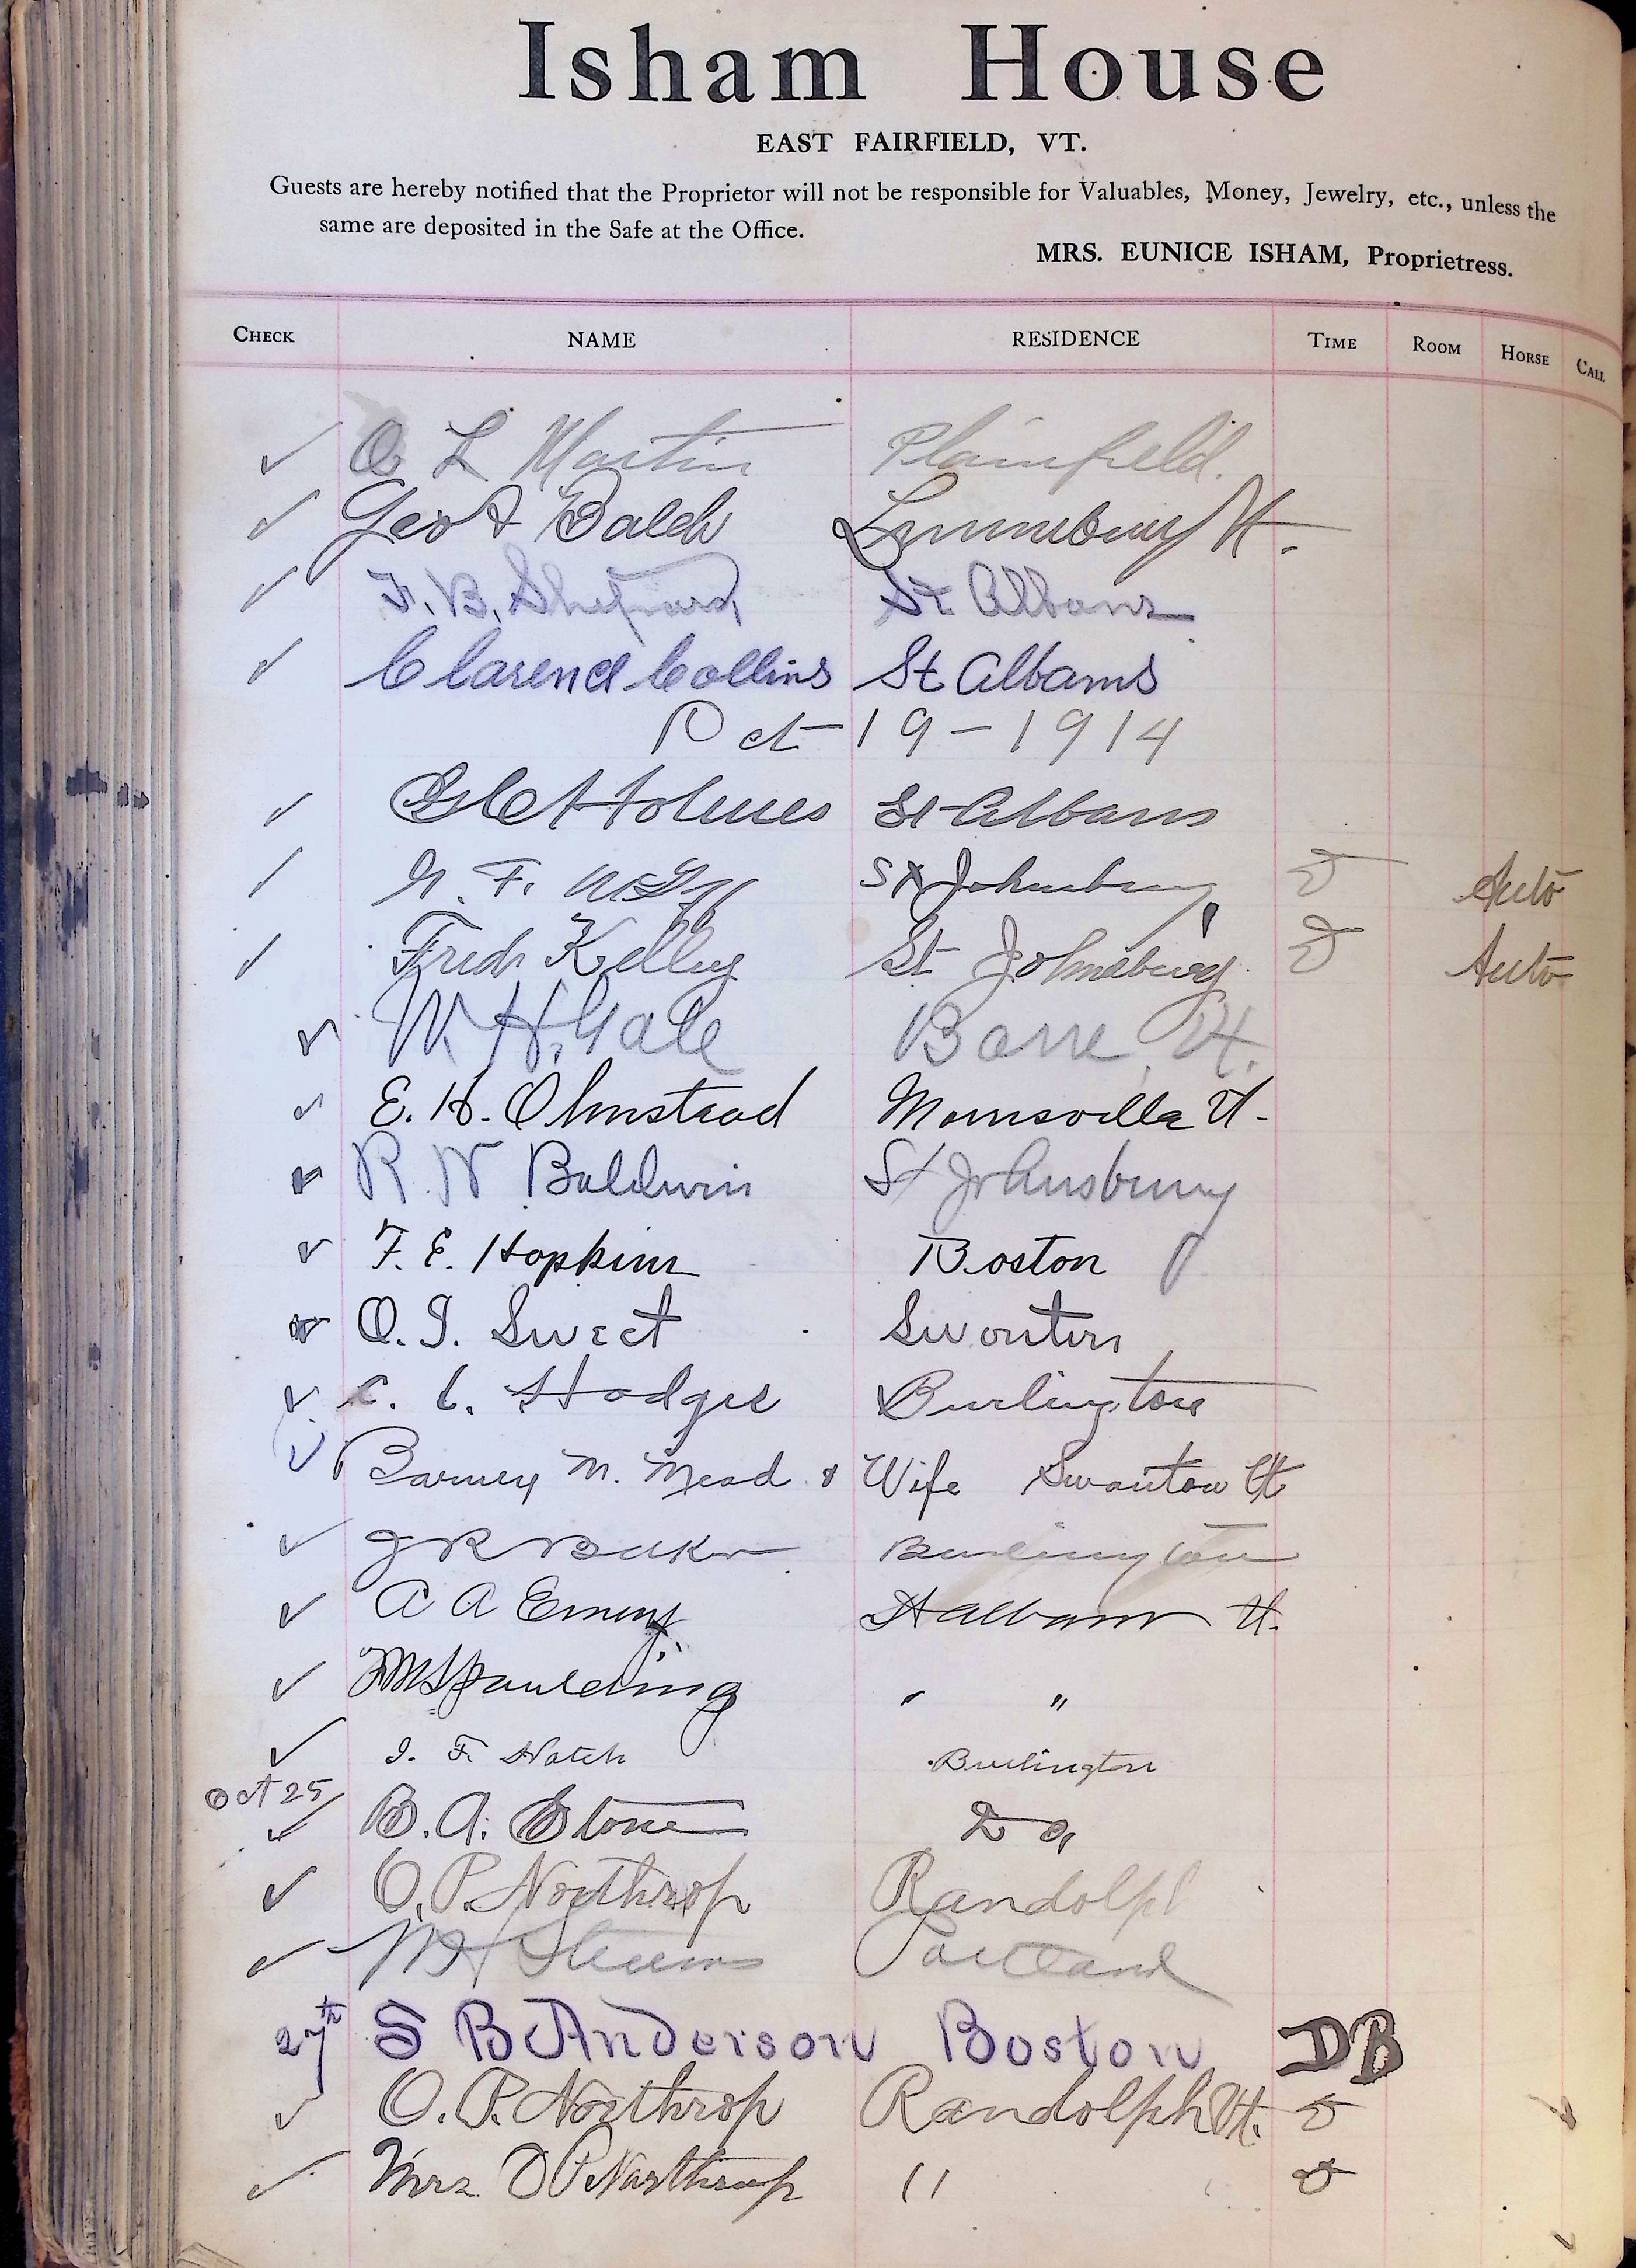 Isham House
EAST FAIRFIELD, VT.
Guests are hereby notified that the Proprietor will not be responsible for Valuables, Money, Jewelry, etc., unless the
same are deposited in the Safe at the Office.
MRS. EUNICE ISHAM, Proprietress.
CHECK NAME RESIDENCE TIME ROOM HORSE CALL
✓ O L Martin Plainfield.
✓ Geo A Balch Lunenburg Vt.
✓ F. B. Shepard St. Albans
✓ Clarence Collins St Albans
Oct 19-1914
✓ Holmes St Albans
✓ F. St Johnsbury Auto
✓ Fred Kelley St Johnsbury. Auto
✓ W. H. Gale Barre Vt.
✓ E. H. Olmstead Morrisville Vt-
✓ R. W Baldwin St Johnsbury
✓ F. E. Hopkins Boston
✓ O. I. Sweet Swanton
✓ C. C. Hodges Burlington
✓ Barney M. Mead & Wife Swanton Vt
✓ J R Burlington
✓ A A Emery St Albans Vt.
✓ Spaulding " "
✓ I. F. Hatch Burlington
Oct 25
✓ B. A. Stone Do
✓ O. P. Northrop Randolph
✓ W H Stearns Portland
27th S B Anderson Boston DB
✓ O. P. Northrop Randolph Vt.
✓ Mrs O P Northrop "